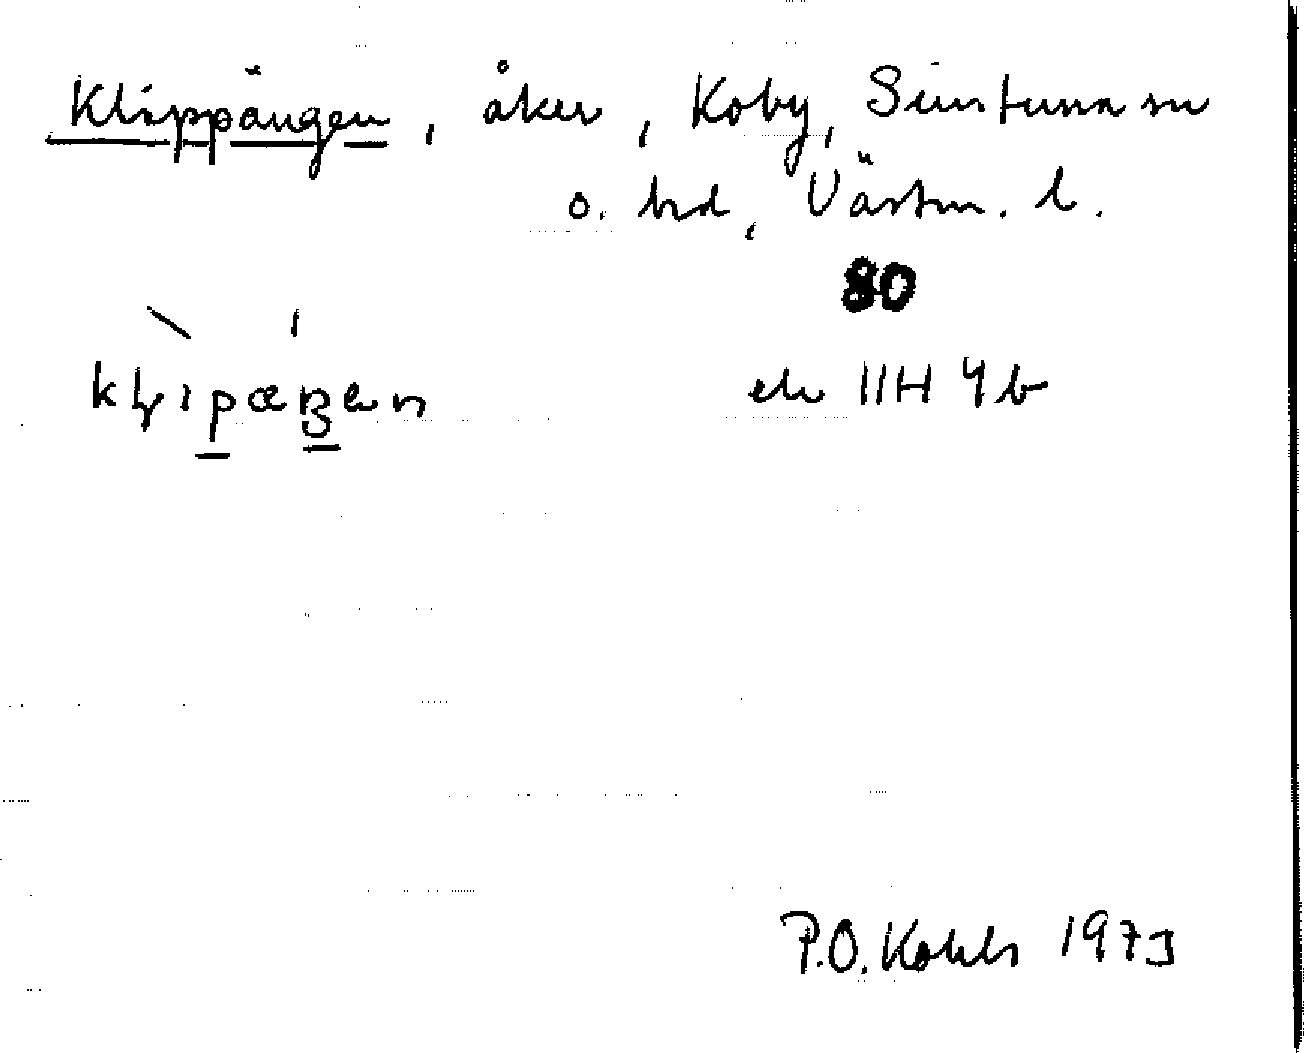 Klippängen, åker, Koby, Simtuna sn
o. hd, Västm. l.
80
ek 11H 4b
P.O. Kohls 1973